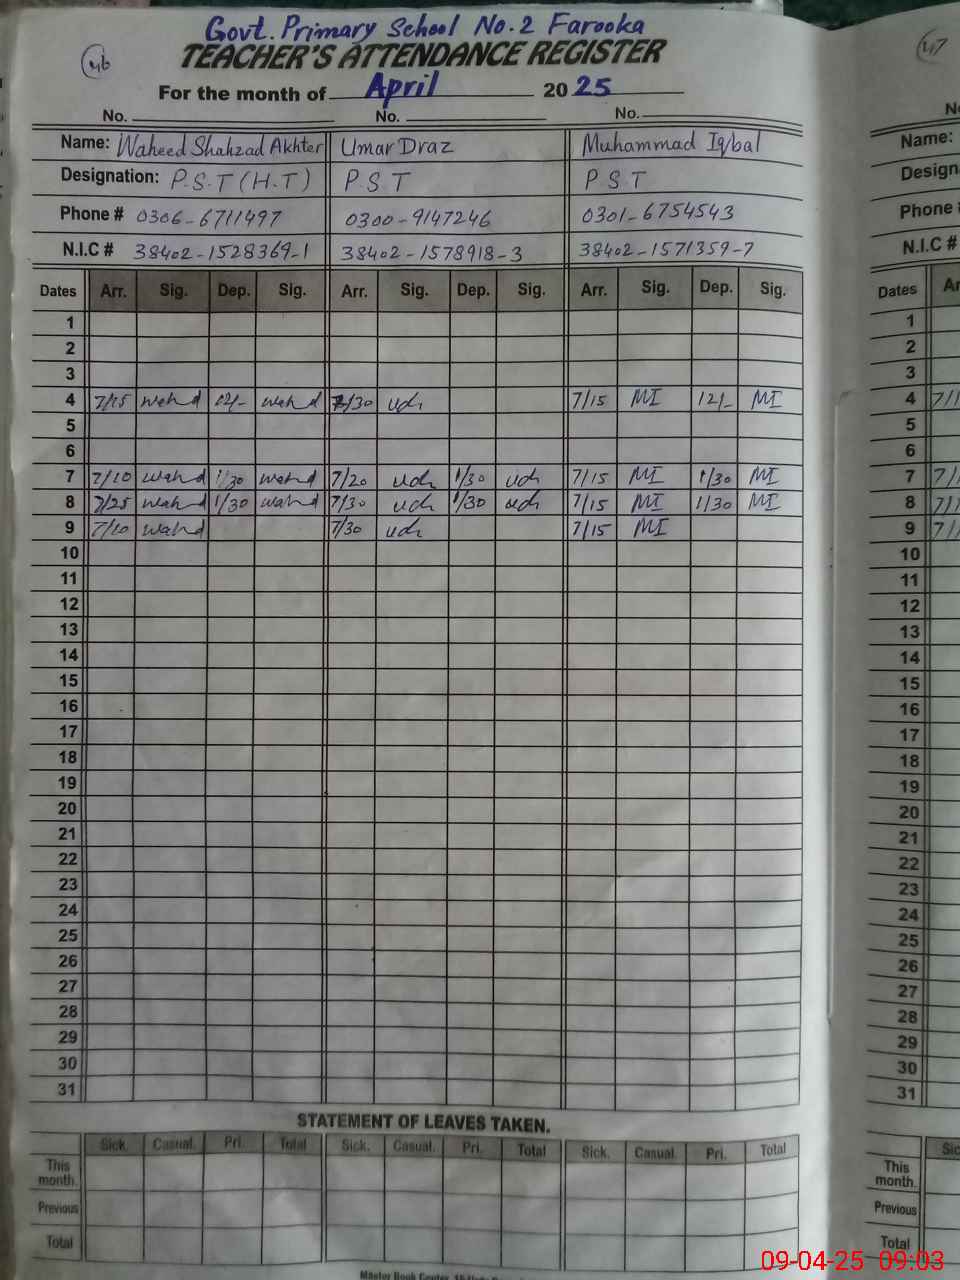 Govt. Primary School No.2 Farooka
46 TEACHER'S ATTENDANCE REGISTER 47
For the month of April 2025
No. No. No.
Name: Waheed Shahzad Akhter Umar Draz Muhammad Iqbal Name:
Designation: P.S.T (H.T) P S T P S T Design
Phone # 0306-6711497 0300-9147246 0301-6754543 Phone #
N.I.C # 38402-1528369-1 38402-1578918-3 38402-1571359-7 N.I.C #
Dates Arr. Sig. Dep. Sig. Arr. Sig. Dep. Sig. Arr. Sig. Dep. Sig. Dates Ar
1 1
2 2
3 3
4 7/15 wahd 12/- wahd 7/30 udr 7/15 MI 12/- MI 4 7/1
5 5
6 6
7 7/10 wahd 1/30 wahd 7/20 udr 1/30 udr 7/15 MI 1/30 MI 7 7/
8 7/25 wahd 1/30 wahd 7/30 udr 1/30 udr 7/15 MI 1/30 MI 8 7/1
9 7/10 wahd 7/30 udr 7/15 MI 9 7/
10 10
11 11
12 12
13 13
14 14
15 15
16 16
17 17
18 18
19 19
20 20
21 21
22 22
23 23
24 24
25 25
26 26
27 27
28 28
29 29
30 30
31 31
STATEMENT OF LEAVES TAKEN.
Sick. Casual. Pri. Total Sick. Casual. Pri. Total Sick. Casual. Pri. Total Sic
This month. This month.
Previous Previous
Total Total
Master Book Center
09-04-25 09:03